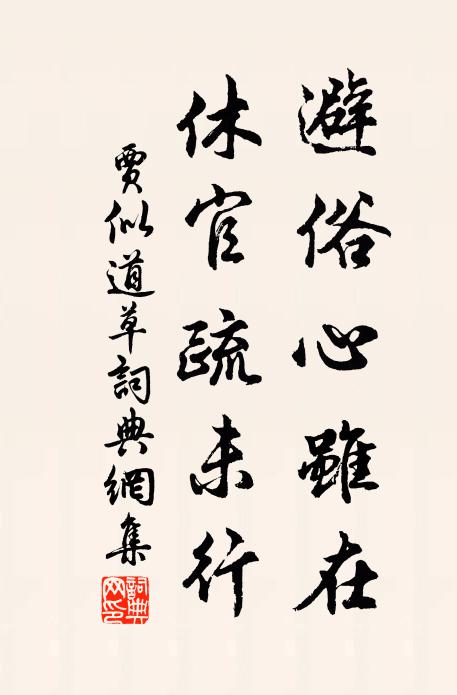 避俗心雖在
休官疏未行
賈似道草詞典網集
詞典網印